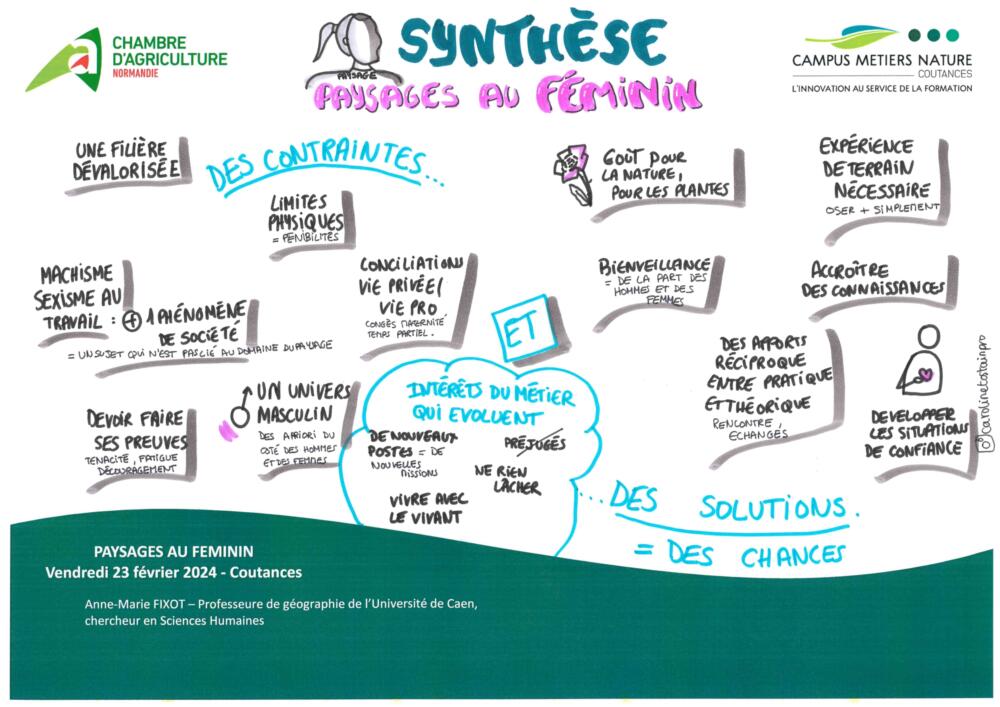 CHAMBRE
D'AGRICULTURE
NORMANDIE
PAYSAGE
SYNTHÈSE
PAYSAGES AU FÉMININ
CAMPUS METIERS NATURE
COUTANCES
L'INNOVATION AU SERVICE DE LA FORMATION
UNE FILIÈRE
DÉVALORISÉE
DES CONTRAINTES...
LIMITES
PHYSIQUES
= PÉNIBILITÉS
MACHISME
SEXISME AU
TRAVAIL : + 1 PHÉNOMÈNE
DE SOCIÉTÉ
= UN SUJET QUI N'EST PAS LIÉ AU DOMAINE DU PAYSAGE
CONCILIATION
VIE PRIVÉE /
VIE PRO
CONGÉS MATERNITÉ
TEMPS PARTIEL.
DEVOIR FAIRE
SES PREUVES
TENACITÉ, FATIGUE
DÉCOURAGEMENT
UN UNIVERS
MASCULIN
DES APRIORI DU
COTÉ DES HOMMES
ET DES FEMMES
ET
INTÉRÊTS DU MÉTIER
QUI EVOLUENT
DE NOUVEAUX
POSTES = DE
NOUVELLES
MISSIONS
PRÉJUGÉS
NE RIEN
LÂCHER
VIVRE AVEC
LE VIVANT
GOÛT POUR
LA NATURE,
POUR LES PLANTES
EXPÉRIENCE
DE TERRAIN
NÉCESSAIRE
OSER + SIMPLEMENT
BIENVEILLANCE
= DE LA PART DES
HOMMES ET DES
FEMMES
ACCROÎTRE
DES CONNAISSANCES
DES APPORTS
RÉCIPROQUE
ENTRE PRATIQUE
ET THÉORIQUE
RENCONTRE,
ECHANGES
DEVELOPPER
LES SITUATIONS
DE CONFIANCE
@carolinetostainpro
...DES SOLUTIONS.
= DES CHANCES
PAYSAGES AU FEMININ
Vendredi 23 février 2024 - Coutances
Anne-Marie FIXOT – Professeure de géographie de l'Université de Caen,
chercheur en Sciences Humaines